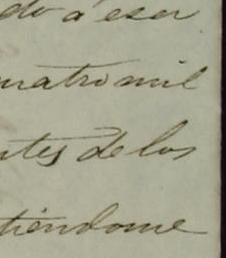 do á esa
uatro mil
ntes de los
tiéndome